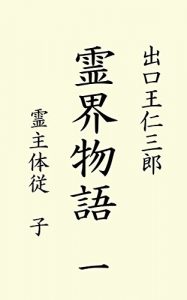 出口王仁三郎
霊界物語 一
霊主体従 子